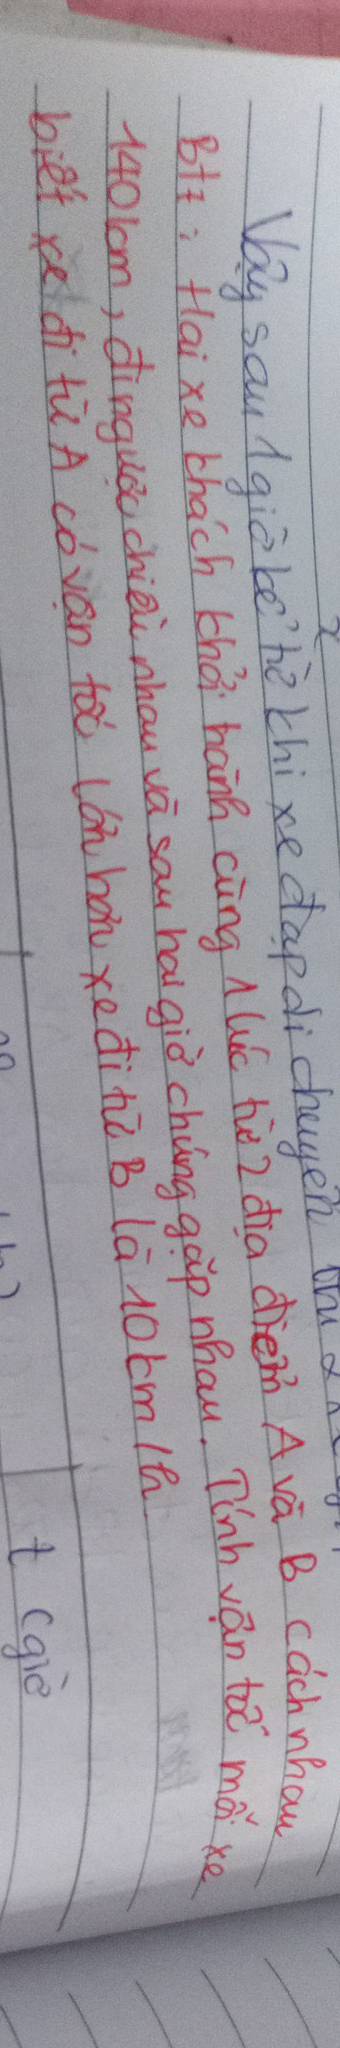 Vậy sau 1 giờ kể từ khi xe đạp di chuyển thì 2
BT7: Hai xe khách khởi hành cùng 1 lúc từ 2 địa điểm A và B cách nhau
140km, đi ngược chiều nhau và sau hai giờ chúng gặp nhau. Tính vận tốc mỗi xe
biết xe đi từ A có vận tốc lớn hơn xe đi từ B là 10km/h
t (giờ